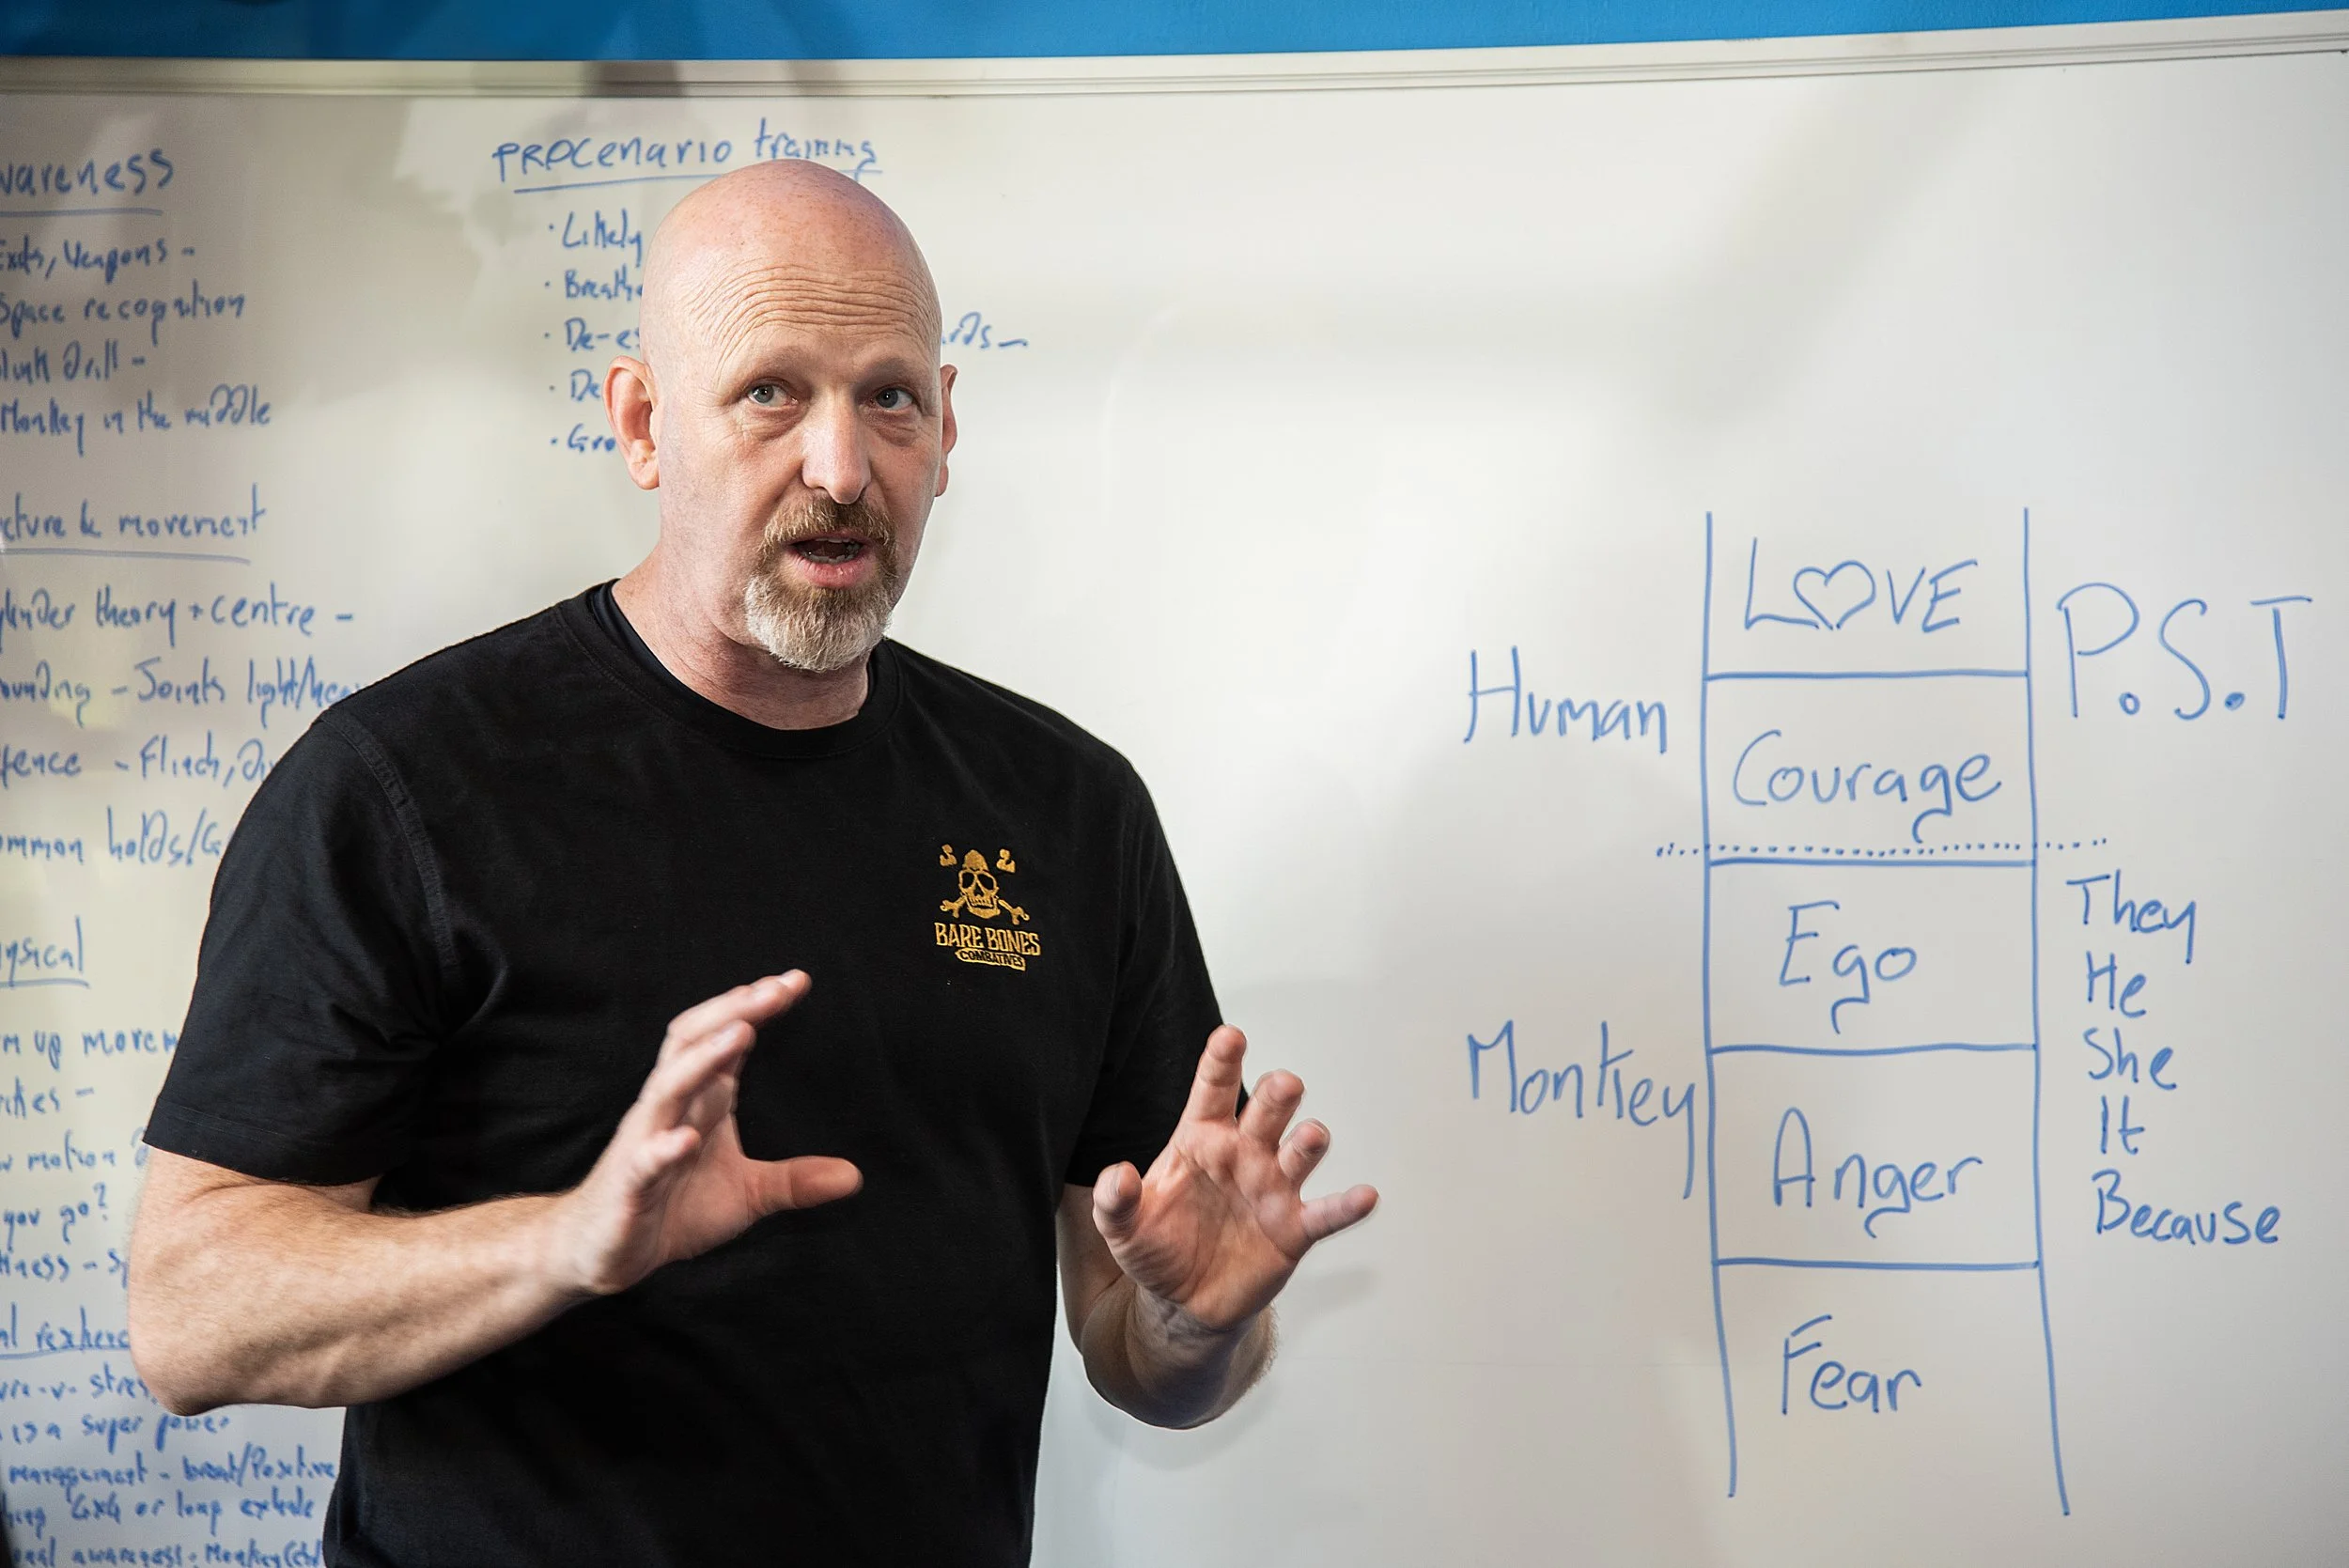 wareness
Exits, Weapons -
Space recognition
Drill -
Monkey in the middle
cture & movement
theory + centre -
ounding - Joints light/heav
fence - Flinch,
ommon holds/G
ysical
m up movem
w motion
you go?
- v - stres
is a super power
management - breat/Positive
or long exhale
awareness - Monkey
PROCENARIO training
· Likely
· Breath
· De-es
· De
· Gro
S 2
BARE BONES
COMBATIVES
Human
Monkey
LOVE
Courage
Ego
Anger
Fear
P.S.T
They
He
She
It
Because